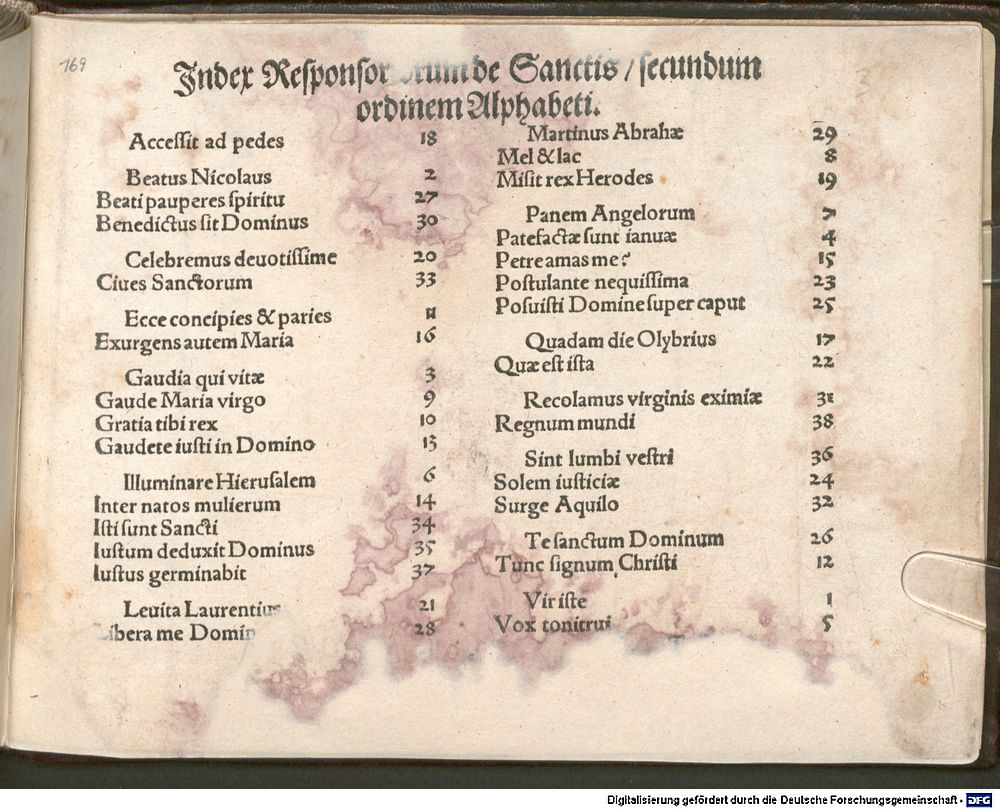 169
Index Responsor orum de Sanctis / secundum
ordinem Alphabeti.
Accessit ad pedes 18
Beatus Nicolaus 2
Beati pauperes spiritu 27
Benedictus sit Dominus 30
Celebremus deuotissime 20
Ciues Sanctorum 33
Ecce concipies & paries 11
Exurgens autem Maria 16
Gaudia qui vitæ 3
Gaude Maria virgo 9
Gratia tibi rex 10
Gaudete iusti in Domino 13
Illuminare Hierusalem 6
Inter natos mulierum 14
Isti sunt Sancti 34
Iustum deduxit Dominus 35
Iustus germinabit 37
Leuita Laurentius 21
Libera me Domin 28
Martinus Abrahæ 29
Mel & lac 8
Misit rex Herodes 19
Panem Angelorum 7
Patefactæ sunt ianuæ 4
Petre amas me? 15
Postulante nequissima 23
Posuisti Domine super caput 25
Quadam die Olybrius 17
Quæ est ista 22
Recolamus virginis eximiæ 31
Regnum mundi 38
Sint lumbi vestri 36
Solem iusticiæ 24
Surge Aquilo 32
Te sanctum Dominum 26
Tunc signum Christi 12
Vir iste 1
Vox tonitrui 5
Digitalisierung gefördert durch die Deutsche Forschungsgemeinschaft - DFG